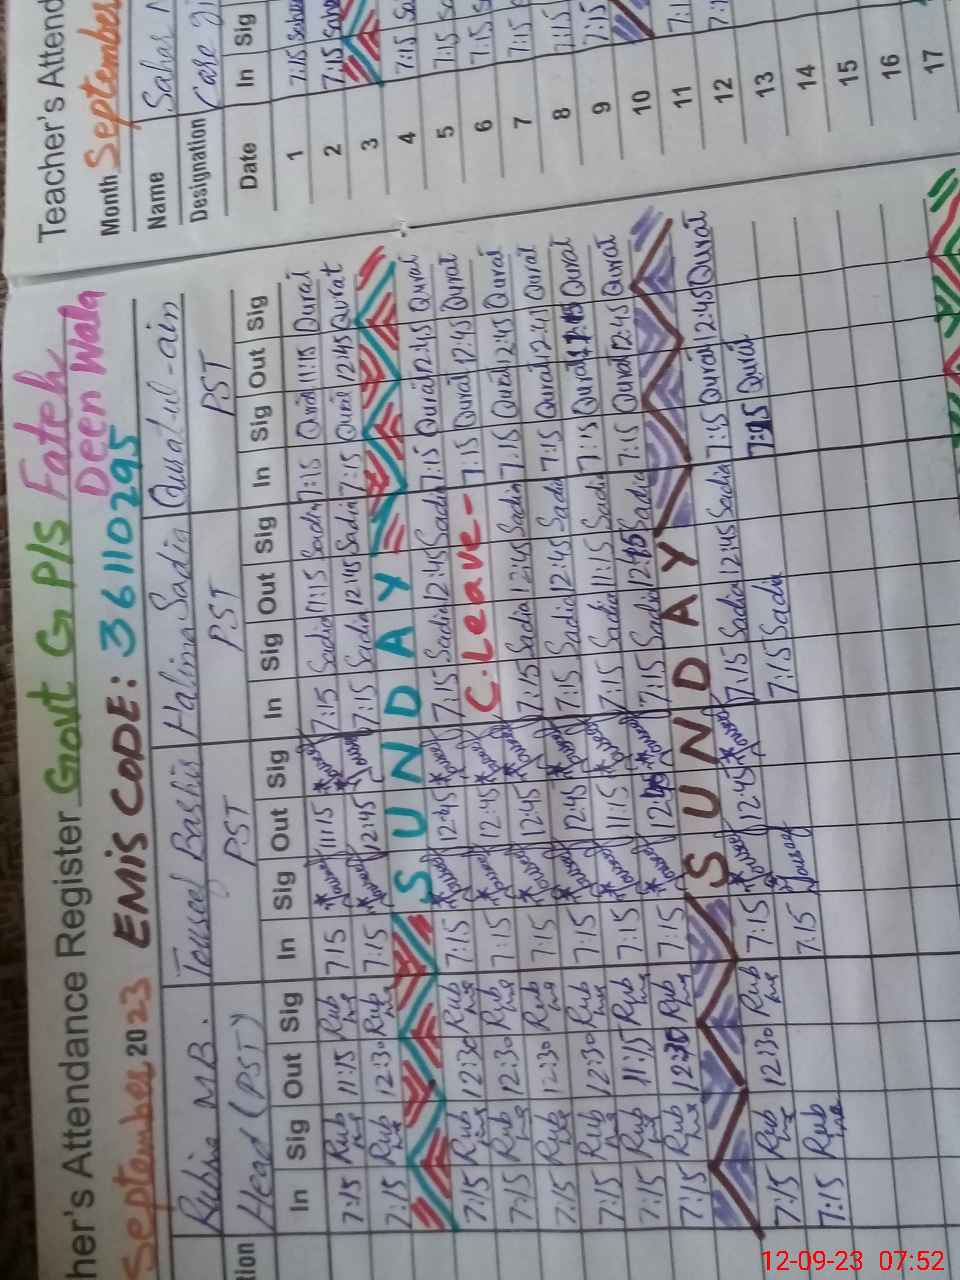 her's Attendance Register Govt G P/S Fateh
Deen Wala
September 2023 EMIS CODE: 36110295
Rubina M.B. Tousaef Bashir Halima Sadia Quratul-ain
Head (PST) PST PST PST
tion In Sig Out Sig In Sig Out Sig In Sig Out Sig In Sig Out Sig
7:15 Rubina 11:15 Rubina 7:15 Tousaef 11:15 Tousaef 7:15 Sadia 11:15 Sadia 7:15 Qurat 11:15 Qurat
7:15 Rubina 12:30 Rubina 7:15 Tousaef 12:45 Tousaef 7:15 Sadia 12:45 Sadia 7:15 Qurat 12:45 Qurat
SUNDAY
7:15 Rubina 12:30 Rubina 7:15 Tousaef 12:45 Tousaef 7:15 Sadia 12:45 Sadia 7:15 Qurat 12:45 Qurat
7:15 Rubina 12:30 Rubina 7:15 Tousaef 12:45 Tousaef C.Leave- 7:15 Qurat 12:45 Qurat
7:15 Rubina 12:30 Rubina 7:15 Tousaef 12:45 Tousaef 7:15 Sadia 12:45 Sadia 7:15 Qurat 12:45 Qurat
7:15 Rubina 12:30 Rubina 7:15 Tousaef 12:45 Tousaef 7:15 Sadia 12:45 Sadia 7:15 Qurat Qurat
7:15 Rubina 11:15 Rubina 7:15 Tousaef 11:15 Tousaef 7:15 Sadia 11:15 Sadia 7:15 Qurat Qurat
7:15 Rubina 12:30 Rubina 7:15 Tousaef Tousaef 7:15 Sadia 12:45 Sadia 7:15 Qurat 12:45 Qurat
SUNDAY
7:15 Rubina 12:30 Rubina 7:15 Tousaef 12:45 Tousaef 7:15 Sadia 12:45 Sadia 7:15 Qurat 12:45 Qurat
7:15 Rubina 7:15 Tousaef 7:15 Sadia 7:15 Qurat
Teacher's Attend
Month September
Name Sahar
Designation Care
Date In Sig
1 7:15
2 7:15
3
4 7:15
5 7:15
6 7:15
7 7:15
8 7:15
9 7:15
10
11
12
13
14
15
16
17
12-09-23 07:52